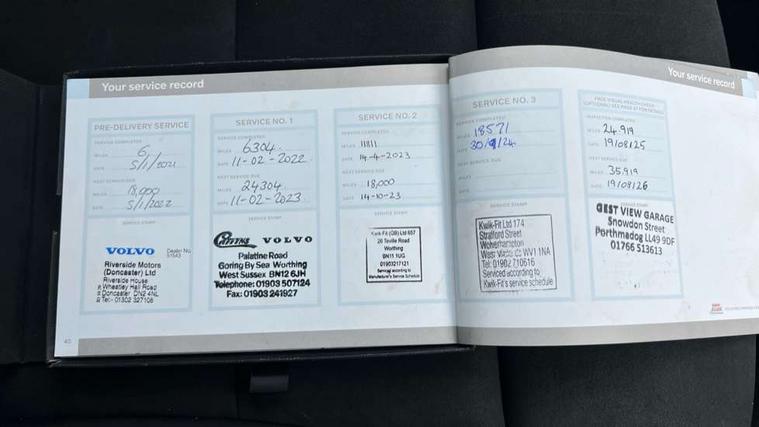 Your service record
PRE-DELIVERY SERVICE
SERVICE COMPLETED
MILES 6
DATE 5/1/2021
NEXT SERVICE DUE
MILES 18,000
DATE 5/1/2022
SERVICE STAMP
VOLVO
Dealer No.
Riverside Motors
(Doncaster) Ltd
Riverside House
Wheatley Hall Road
Doncaster DN2 4NL
Tel: 01302 327108
40
SERVICE NO. 1
SERVICE COMPLETED
MILES 6304
DATE 11-02-2022
NEXT SERVICE DUE
MILES 24304
DATE 11-02-2023
SERVICE STAMP
VOLVO
Palatine Road
Goring By Sea Worthing
West Sussex BN12 6JH
Telephone: 01903 507124
Fax: 01903 241927
SERVICE NO. 2
SERVICE COMPLETED
MILES 11811
DATE 14-4-2023
NEXT SERVICE DUE
MILES 18,000
DATE 14-10-23
SERVICE STAMP
Kwik-Fit (GB) Ltd 657
26 Teville Road
Worthing
BN11 1UG
01903217121
Serviced according to
Manufacturer's Service Schedule
Your service record
SERVICE NO. 3
SERVICE COMPLETED
MILES 18571
DATE 30/9/24
NEXT SERVICE DUE
MILES
DATE
SERVICE STAMP
Kwik-Fit Ltd 174
Stratford Street
Wolverhampton
West Midlands WV1 1NA
Tel: 01902 710616
Serviced according to
Kwik-Fit's service schedule
FREE VISUAL HEALTH CHECK
MILES 24,919
DATE 19/08/25
NEXT SERVICE DUE
MILES 35,919
DATE 19/08/26
SERVICE STAMP
VIEW GARAGE
Snowdon Street
Porthmadog LL49 9DF
01766 513613